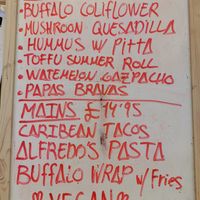 • BUFFALO COLIFLOWER
• MUSHROON QUESADILLA
• HUMMUS W/ PITTA
• TOFFU SUMMER ROLL
• WATEMELON GAZPACHO
• PAPAS BRAVAS
MAINS £14'95
CARIBEAN TACOS
ALFREDO'S PASTA
BUFFALO WRAP w/ Fries
♡ VEGAN ♡